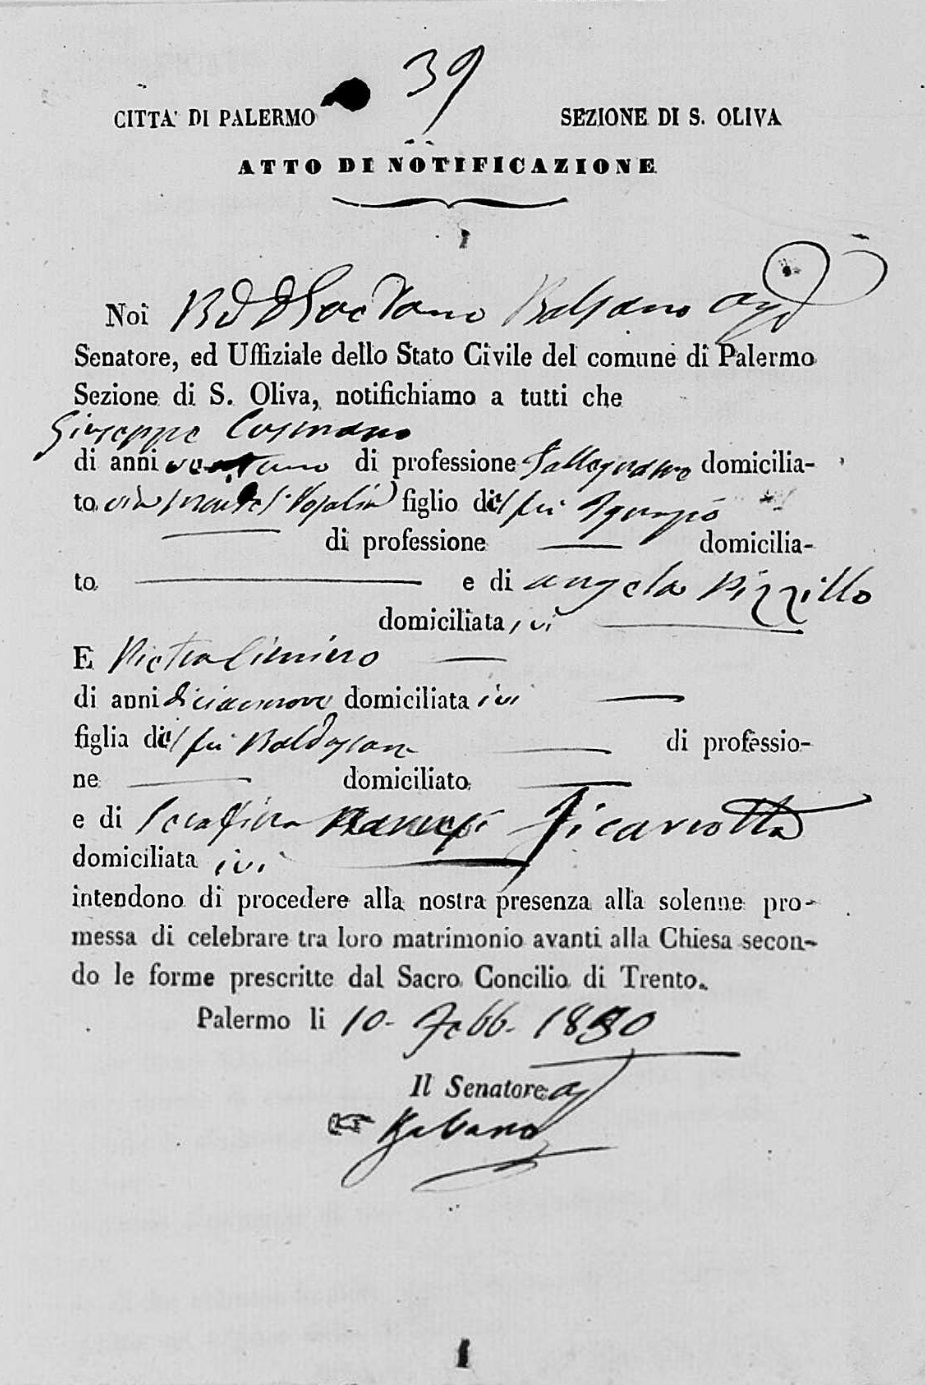 39
CITTA' DI PALERMO SEZIONE DI S. OLIVA
ATTO DI NOTIFICAZIONE
Noi Bd D Gaetano Balsano
Senatore, ed Uffiziale dello Stato Civile del comune di Palermo
Sezione di S. Oliva, notifichiamo a tutti che
Giuseppe Cusmano
di anni ventuno di professione Fallegname domicilia-
to via figlio del fu
di professione domicilia-
to e di angela Pizzillo
domiciliata ivi
E Pietra Cimino
di anni diciannove domiciliata ivi
figlia del fu Baldassare di professio-
ne domiciliato
e di Serafina Ficarrotta
domiciliata ivi
intendono di procedere alla nostra presenza alla solenne pro-
messa di celebrare tra loro matrimonio avanti alla Chiesa secon-
do le forme prescritte dal Sacro Concilio di Trento.
Palermo li 10 - Febb. 1850
Il Senatore
Balsano